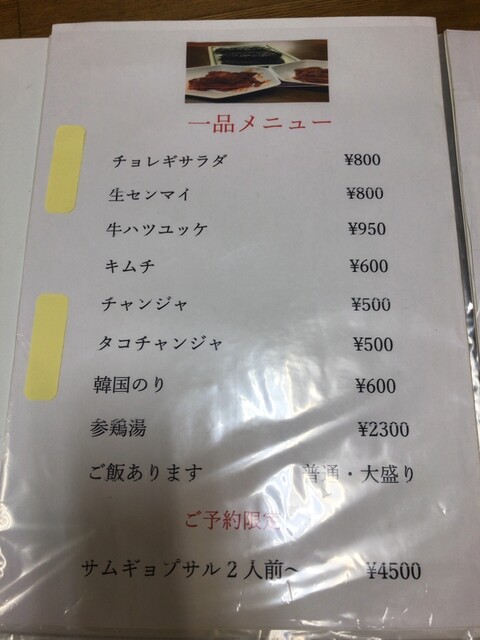 一品メニュー
チョレギサラダ ¥800
生センマイ ¥800
牛ハツユッケ ¥950
キムチ ¥600
チャンジャ ¥500
タコチャンジャ ¥500
韓国のり ¥600
参鶏湯 ¥2300
ご飯あります 普通・大盛り
ご予約限定
サムギョプサル2人前~ ¥4500